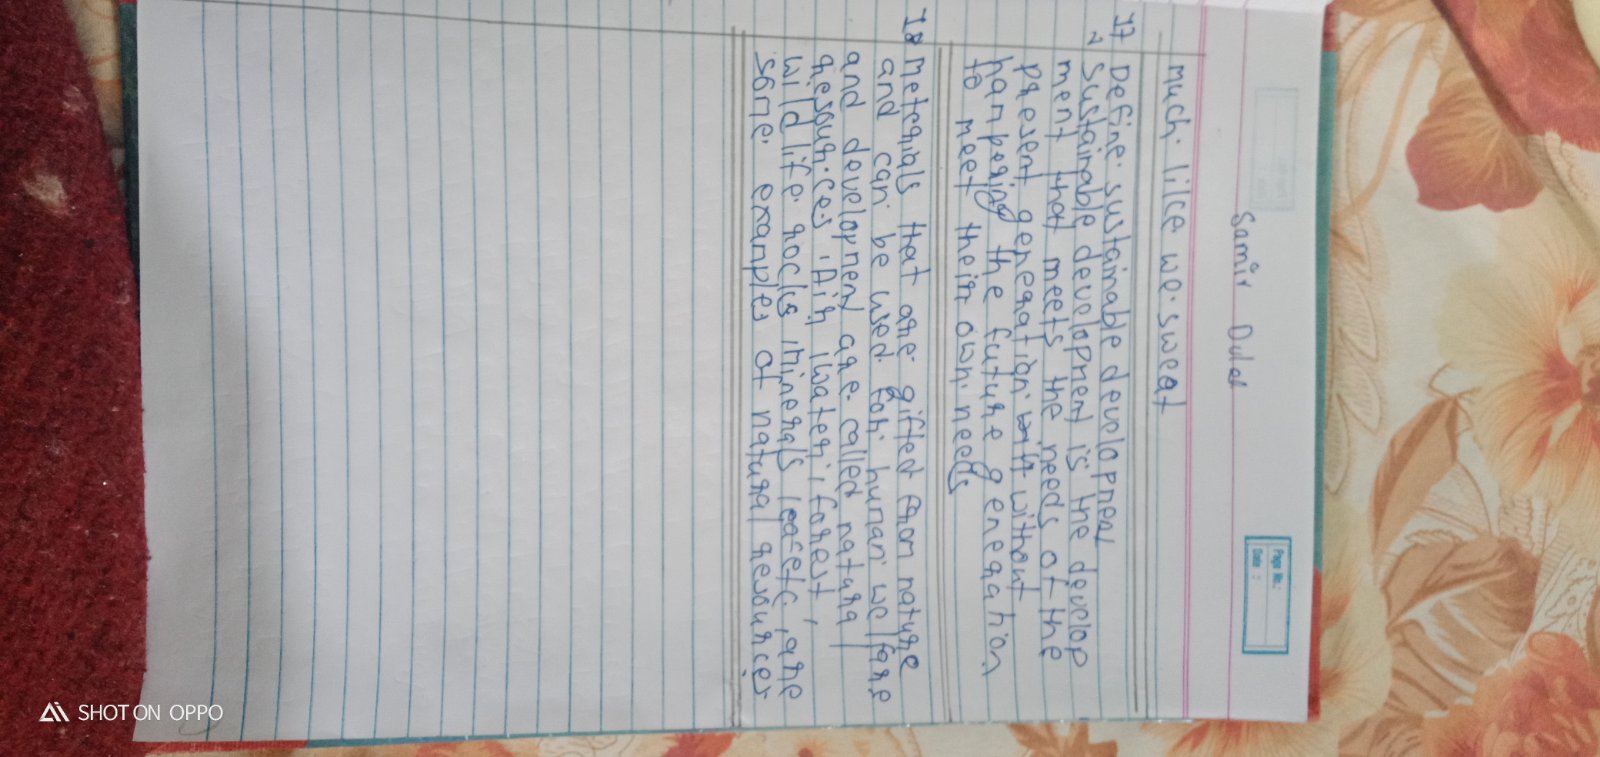 Samir Dulal
Page No.:
Date :
much. like we. sweat
17 Define. sustainable developmeat
2 sustainable development is the develop
ment that meets the needs of the
present generation. with without
hampering the future generation
to meet their own. needs
18 meterials that are. gifted from nature
and can. be used. for. human. welfare
and development are. called natural
resour.ces. Air, water, forest,
wildlife. rocks, minerals, etc, are
some. examples of natural resources
SHOT ON OPPO